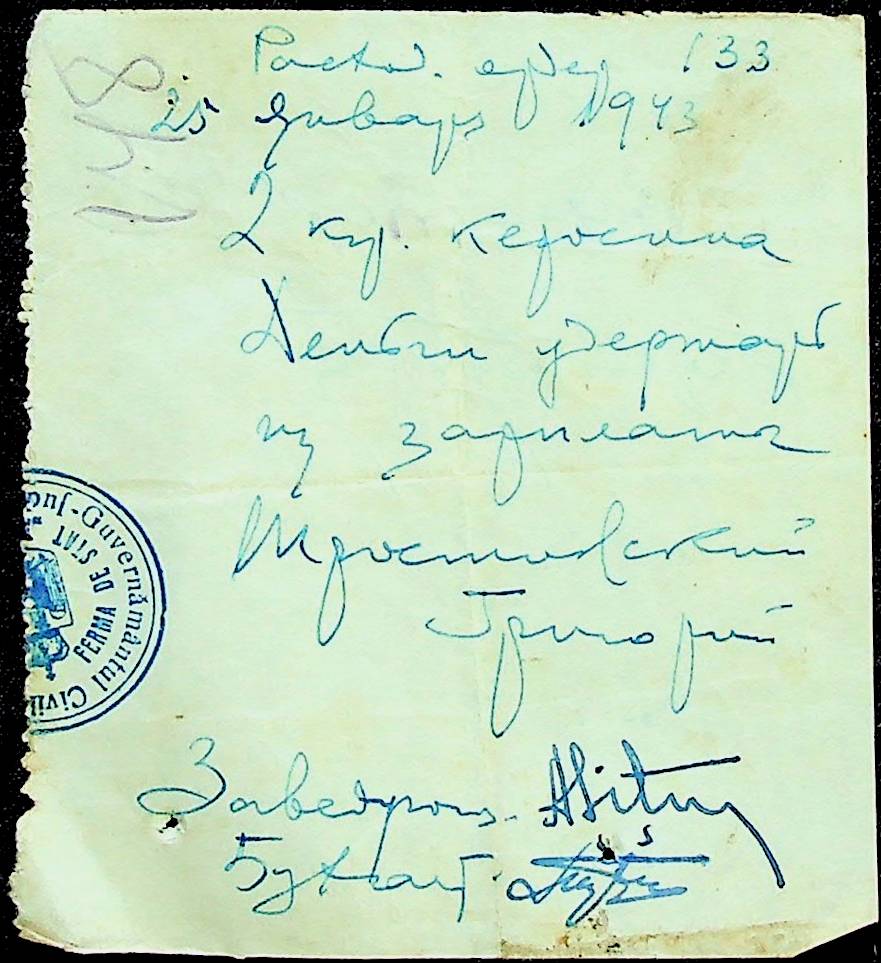 148
Расход. ордер 133
25 Января 1943
2 кгр. керосина
Деньги удержать
из зарплаты
Тростовский
Григорий
Заведующ.
Бухгалт.
Guvernământul Civil
FERMA DE STAT